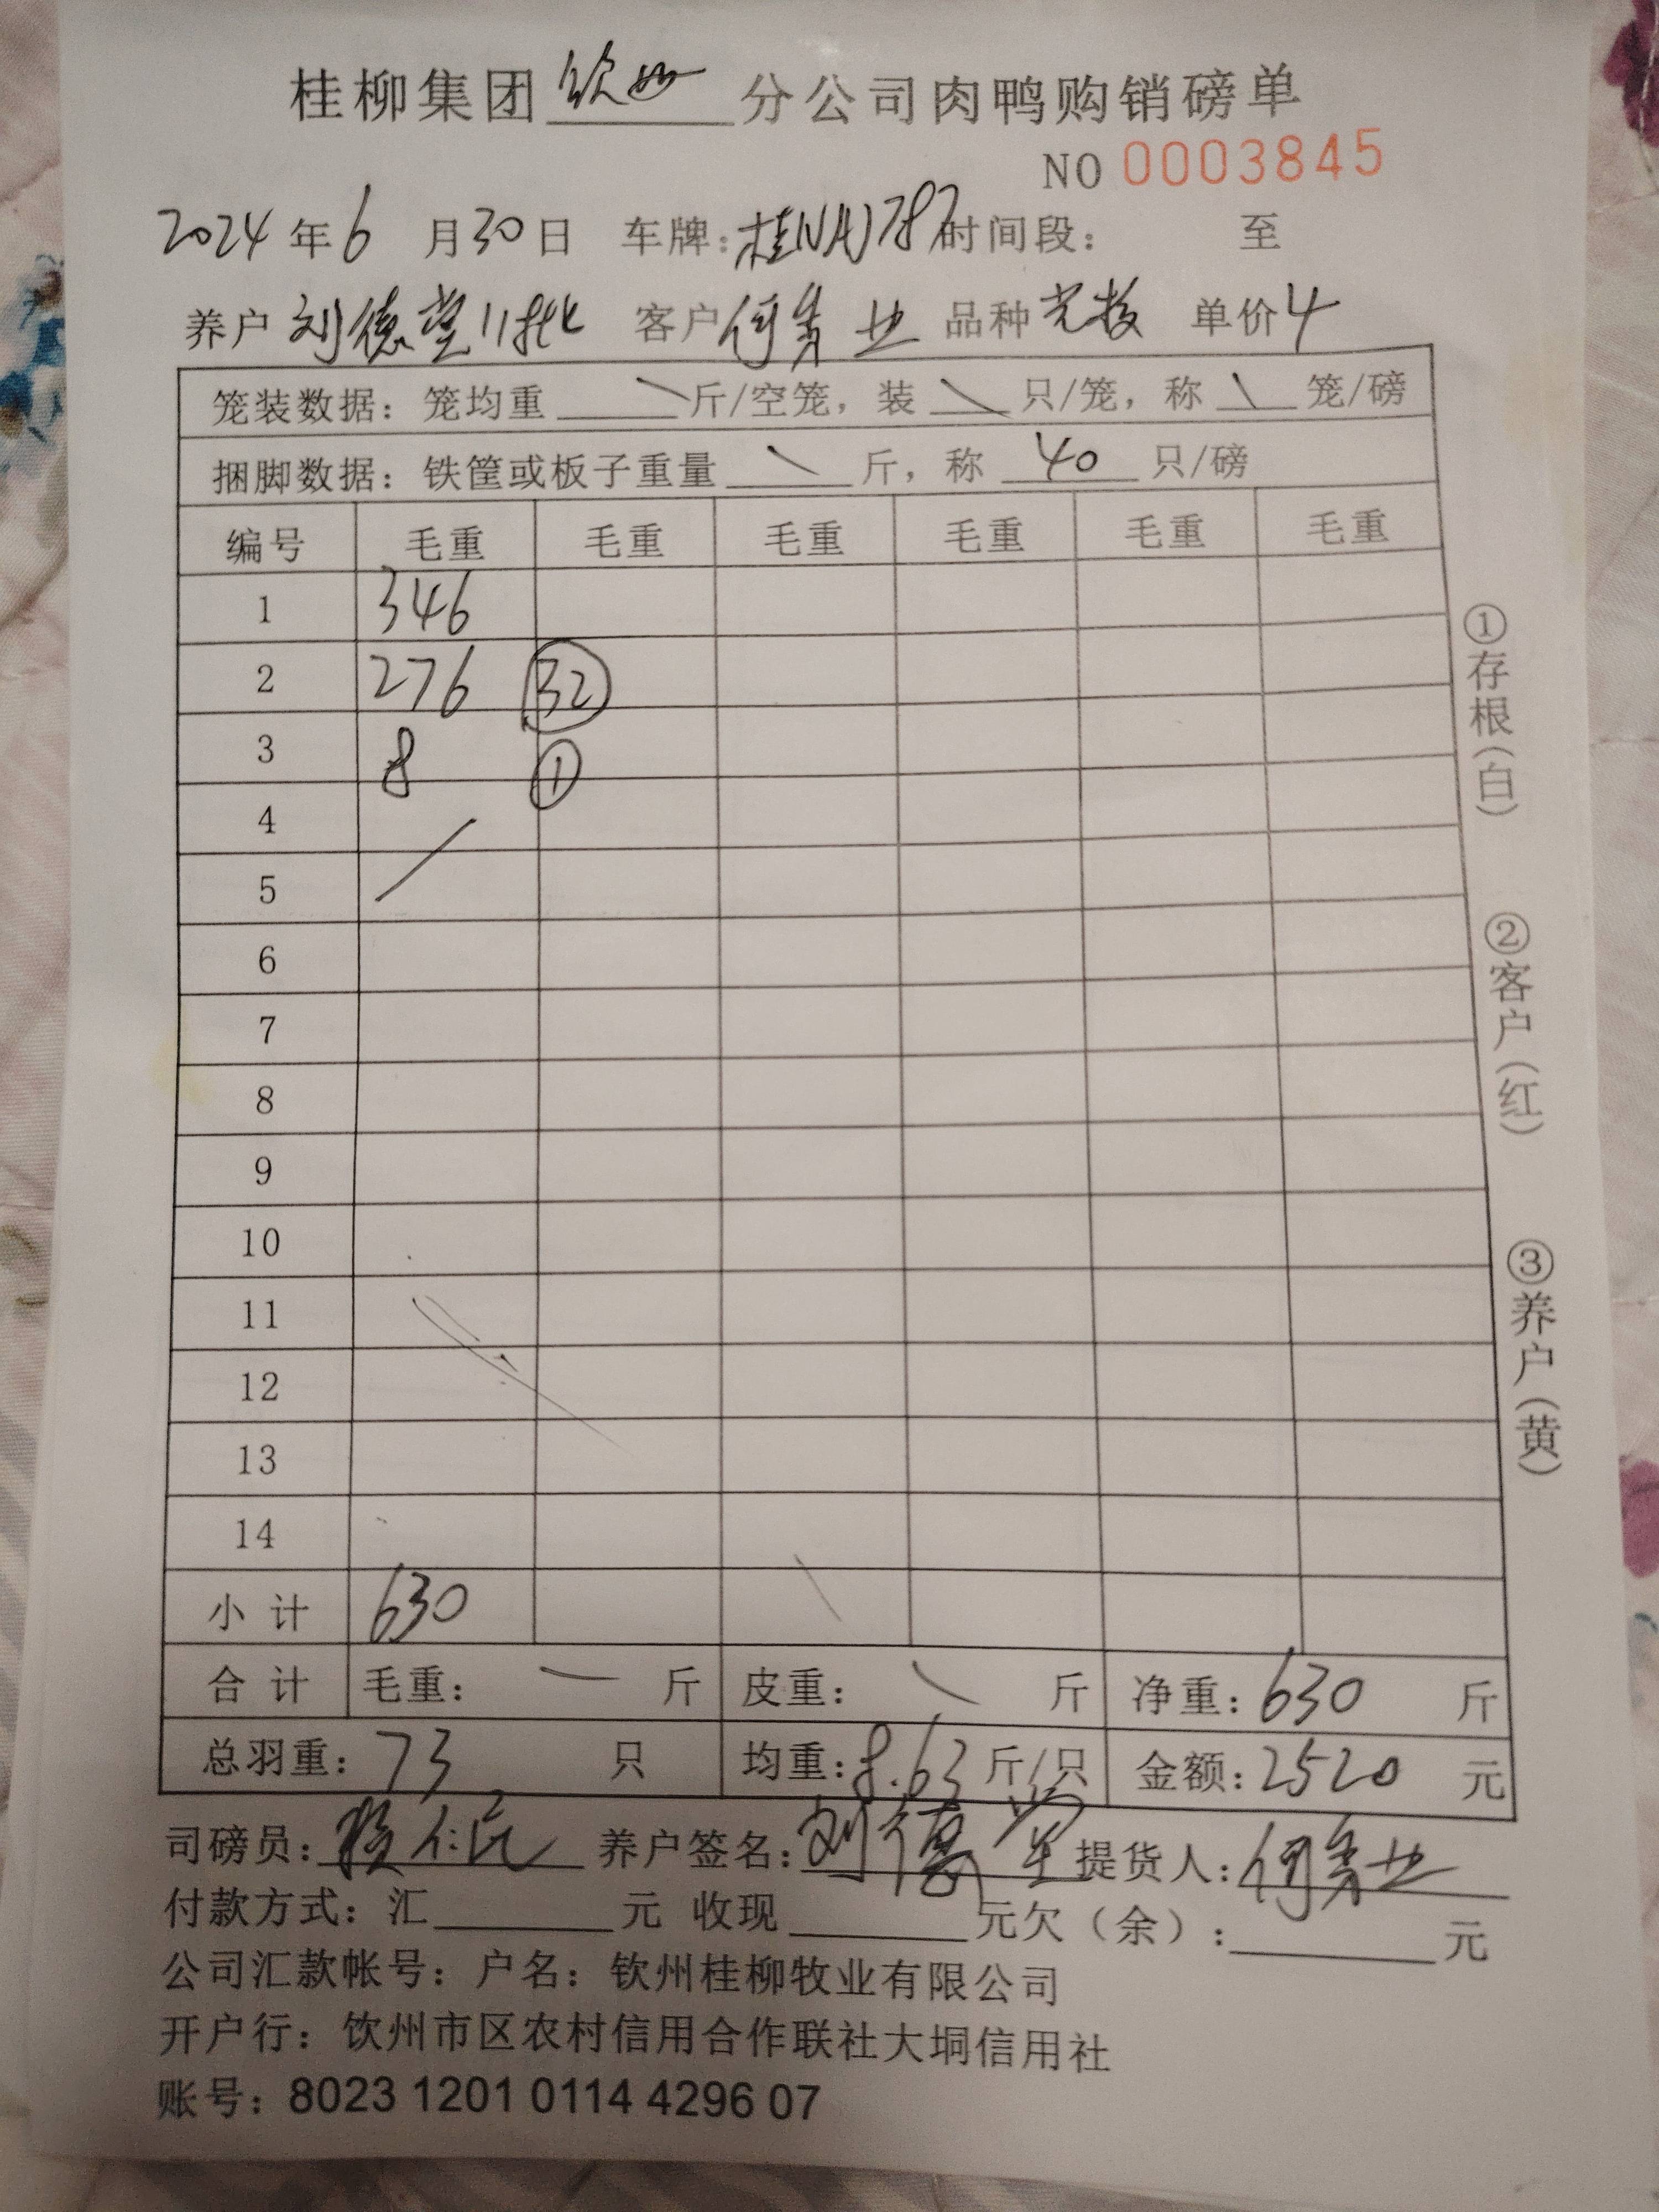 桂柳集团 钦州 分公司肉鸭购销磅单
NO 0003845
2024 年 6 月 30 日 车牌: 时间段: 至
养户 刘德堂 11批 客户 何秀业 品种 单价 4
笼装数据: 笼均重 斤/空笼, 装 只/笼, 称 笼/磅
捆脚数据: 铁筐或板子重量 斤, 称 40 只/磅
编号 毛重 毛重 毛重 毛重 毛重 毛重
1 346
2 276 ㉜
3 8 ①
4
5
6
7
8
9
10
11
12
13
14
小 计 630
合 计 毛重: 斤 皮重: 斤 净重: 630 斤
总羽重: 73 只 均重: 8.63 斤/只 金额: 2520 元
司磅员: 养户签名: 刘德堂 提货人: 何秀业
付款方式: 汇 元 收现 元欠(余): 元
公司汇款帐号: 户名: 钦州桂柳牧业有限公司
开户行: 饮州市区农村信用合作联社大垌信用社
账号: 8023 1201 0114 4296 07
①存根(白)
②客户(红)
③养户(黄)